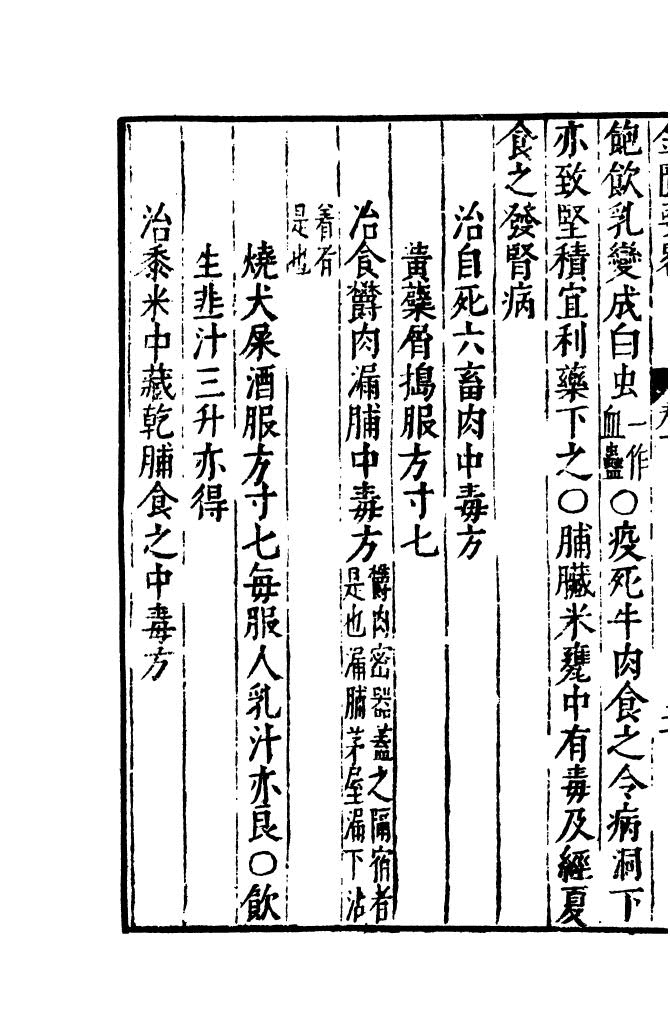 飽飲乳變成白虫一作血蠱○疫死牛肉食之令病洞下
亦致堅積宜利藥下之○脯臟米甕中有毒及經夏
食之發腎病
治自死六畜肉中毒方
黃蘗屑搗服方寸七
治食鬱肉漏脯中毒方欝肉密器蓋之隔宿者是也漏脯茅屋漏下沾
着者是也
燒犬屎酒服方寸七每服人乳汁亦良○飲
生韭汁三升亦得
治黍米中藏乾脯食之中毒方